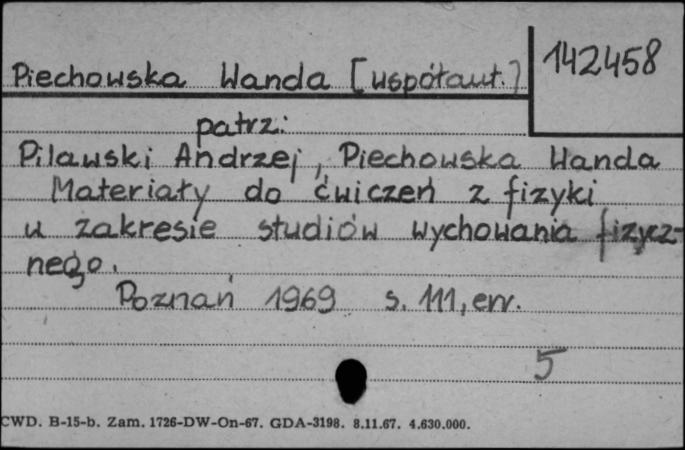 142458
Piechowska Wanda [współaut.]
patrz:
Pilawski Andrzej, Piechowska Wanda
Materiały do ćwiczeń z fizyki
w zakresie studiów wychowania fizycz-
nego.
Poznań 1969 s. 111, err.
5
CWD. B-15-b. Zam. 1726-DW-On-67. GDA-3198. 8.11.67. 4.630.000.